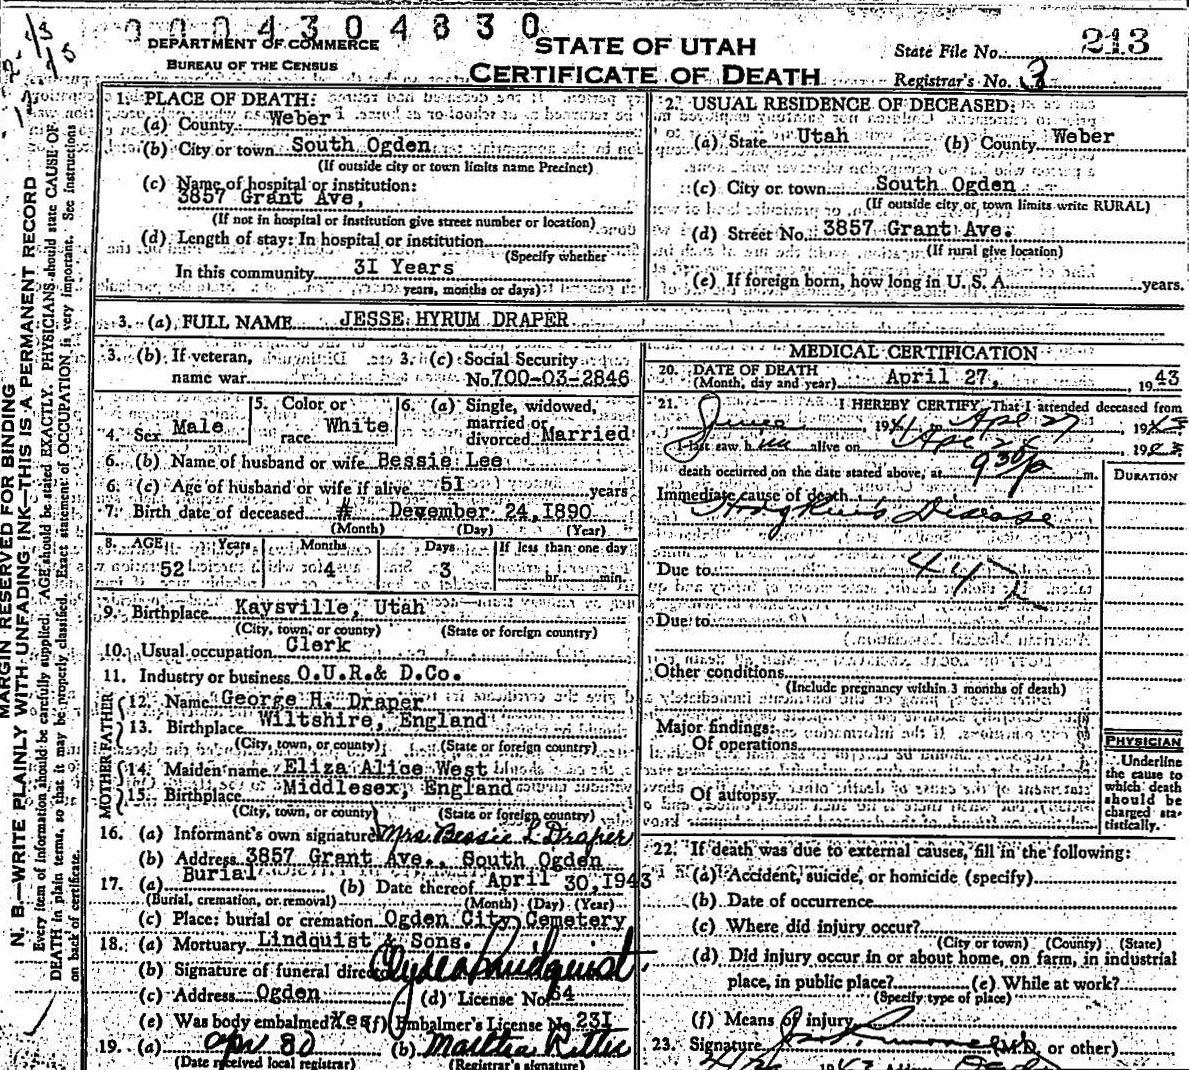 0004304830
DEPARTMENT OF COMMERCE
BUREAU OF THE CENSUS
STATE OF UTAH
CERTIFICATE OF DEATH
State File No. 213
Registrar's No. 3
MARGIN RESERVED FOR BINDING
N. B.—WRITE PLAINLY WITH UNFADING INK—THIS IS A PERMANENT RECORD
Every item of information should be carefully supplied. AGE should be stated EXACTLY. PHYSICIANS should state CAUSE OF
DEATH in plain terms, so that it may be properly classified. Exact statement of OCCUPATION is very important. See instructions
on back of certificate.
1. PLACE OF DEATH:
(a) County Weber
(b) City or town South Ogden
(If outside city or town limits name Precinct)
(c) Name of hospital or institution:
3857 Grant Ave,
(If not in hospital or institution give street number or location)
(d) Length of stay: In hospital or institution
(Specify whether
In this community 31 Years
years, months or days)
2. USUAL RESIDENCE OF DECEASED:
(a) State Utah (b) County Weber
(c) City or town South Ogden
(If outside city or town limits write RURAL)
(d) Street No. 3857 Grant Ave.
(If rural give location)
(e) If foreign born, how long in U. S. A. years.
3. (a) FULL NAME JESSE HYRUM DRAPER
3. (b) If veteran, name war
3. (c) Social Security No. 700-03-2846
4. Sex Male
5. Color or race White
6. (a) Single, widowed, married or divorced Married
6. (b) Name of husband or wife Bessie Lee
6. (c) Age of husband or wife if alive 51 years
7. Birth date of deceased # Devember 24, 1890
(Month) (Day) (Year)
8. AGE Years Months Days If less than one day
52 4 3 hr. min.
9. Birthplace Kaysville, Utah
(City, town, or county) (State or foreign country)
10. Usual occupation Clerk
11. Industry or business O.U.R.& D.Co.
FATHER
12. Name George H. Draper
13. Birthplace Wiltshire, England
(City, town, or county) (State or foreign country)
MOTHER
14. Maiden name Eliza Alice West
15. Birthplace Middlesex, England
(City, town, or county) (State or foreign country)
16. (a) Informant's own signature Mrs. Bessie L Draper
(b) Address 3857 Grant Ave., South Ogden
17. (a) Burial (b) Date thereof April 30, 1943
(Burial, cremation, or removal) (Month) (Day) (Year)
(c) Place: burial or cremation Ogden City Cemetery
18. (a) Mortuary Lindquist & Sons.
(b) Signature of funeral director Clyde Lindquist
(c) Address Ogden (d) License No. 64
(e) Was body embalmed? Yes (f) Embalmer's License No. 231
19. (a) Apr 30 (b) Ritter
(Date received local registrar) (Registrar's signature)
MEDICAL CERTIFICATION
20. DATE OF DEATH
(Month, day and year) April 27, 1943
21. I HEREBY CERTIFY, That I attended deceased from
June 1941 Apr 27 1943
I last saw him alive on Apr 26 1943
death occurred on the date stated above, at 9 30 p m.
DURATION
Immediate cause of death
Hodgkins Disease
Due to
Due to
Other conditions
(Include pregnancy within 3 months of death)
Major findings:
Of operations
Of autopsy
PHYSICIAN
Underline
the cause to
which death
should be
charged sta-
tistically.
22. If death was due to external causes, fill in the following:
(a) Accident, suicide, or homicide (specify)
(b) Date of occurrence
(c) Where did injury occur?
(City or town) (County) (State)
(d) Did injury occur in or about home, on farm, in industrial
place, in public place? (e) While at work?
(Specify type of place)
(f) Means of injury
23. Signature (M.D. or other)